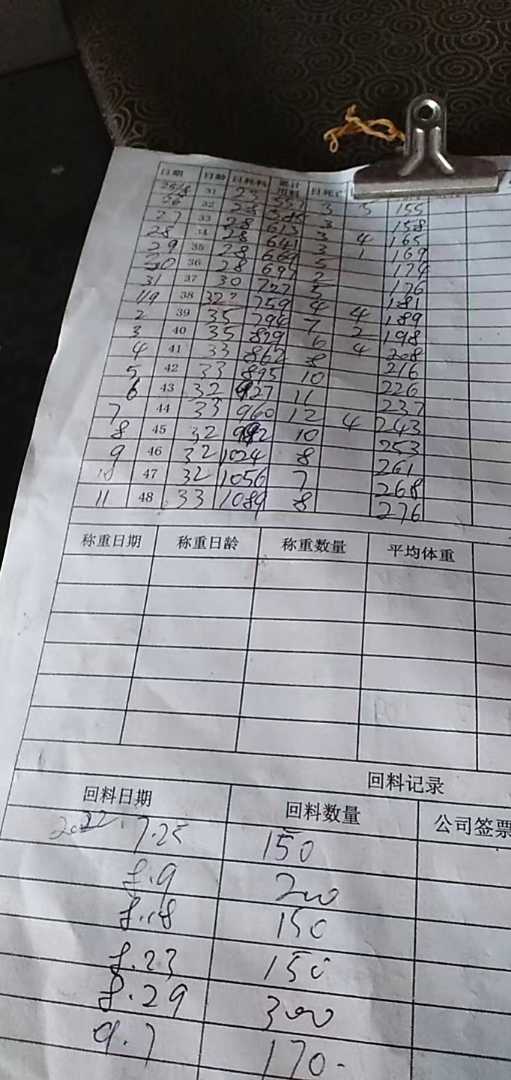 日期 日龄 日耗料 累计用料 日死亡
25/8 31 155
26 32 3 5 158
27 33 28 613 3 165
28 34 28 641 3 4 169
29 35 28 669 3 1 174
30 36 28 697 2 176
31 37 30 727 2 181
1/9 38 32 759 4 4 189
2 39 35 794 7 2 198
3 40 35 829 6 4 208
4 41 33 862 8 216
5 42 33 895 10 226
6 43 32 927 11 237
7 44 33 960 12 4 243
8 45 32 992 10 253
9 46 32 1024 8 261
10 47 32 1056 7 268
11 48 33 1089 8 276
称重日期 称重日龄 称重数量 平均体重
回料记录
回料日期 回料数量 公司签票
2022.7.25 150
8.9 200
8.18 150
8.23 150
8.29 300
9.7 170-